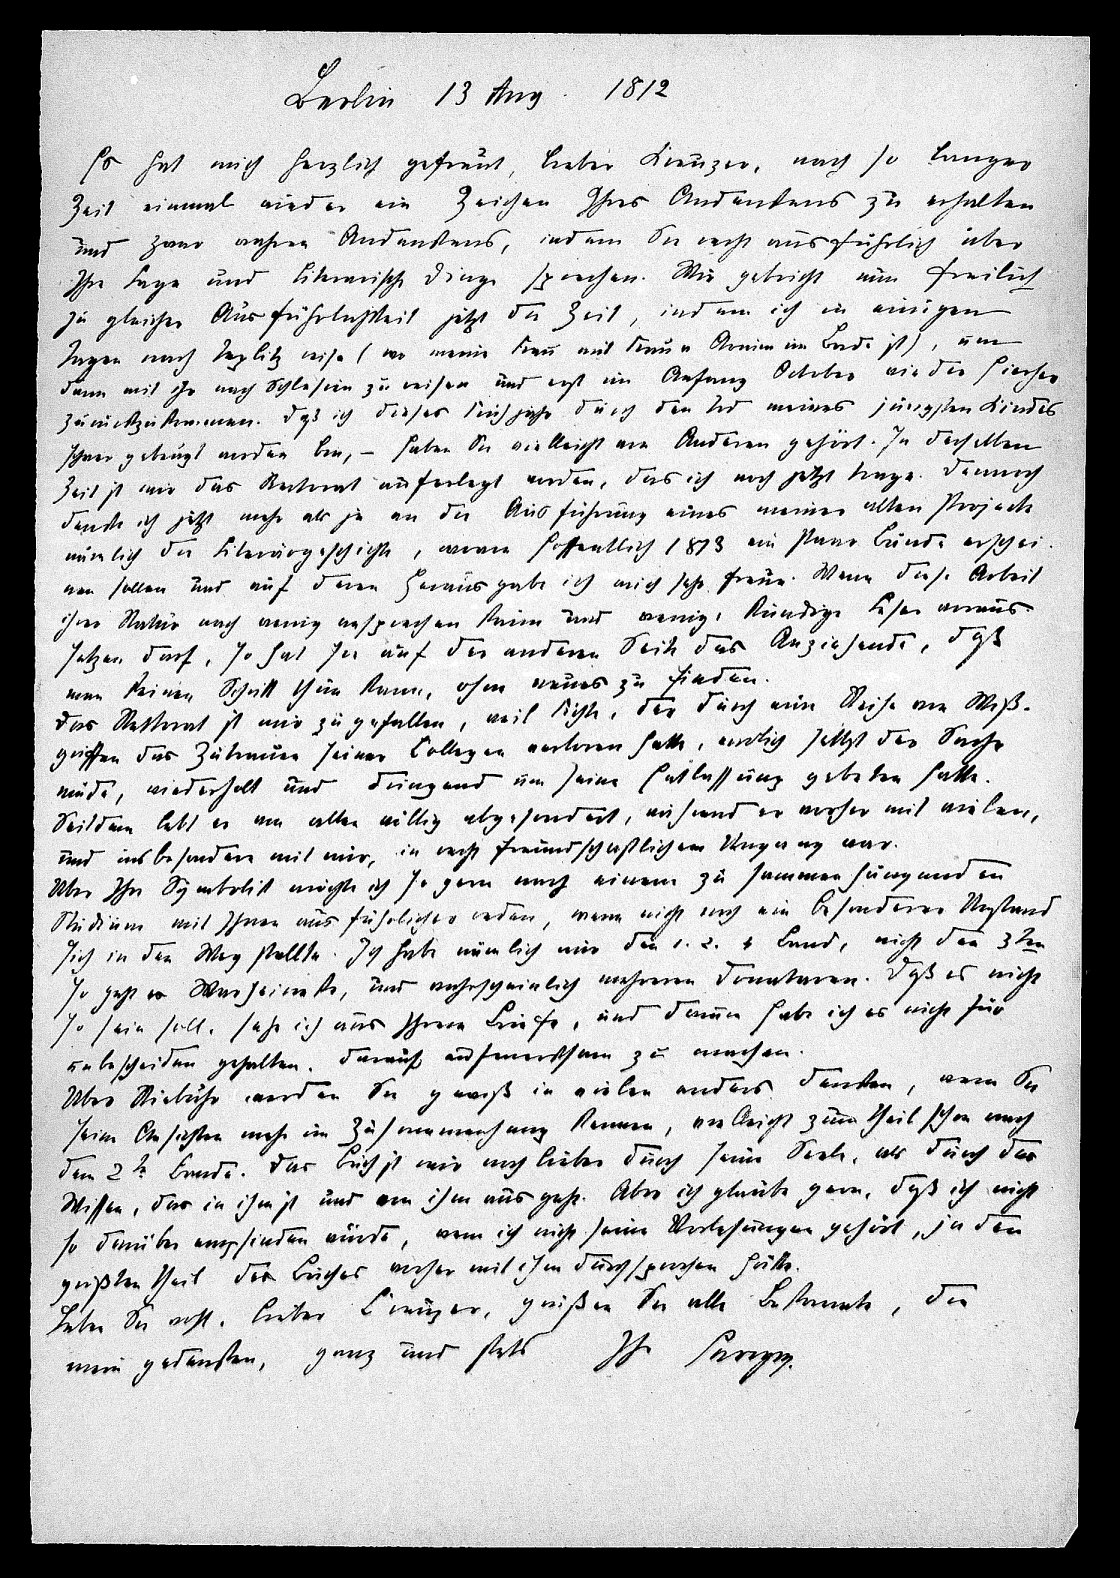 Berlin 13 Aug. 1812
Es hat mich herzlich gefreut, lieber Creuzer, nach so langer
Zeit einmal wieder ein Zeichen Ihres Andenkens zu erhalten
und zwar wahren Andenkens, indem Sie recht ausführlich über
Ihre Lage und literarische Dinge sprechen. Mir gebricht nun freilich
zu gleicher Ausführlichkeit jetzt die Zeit, indem ich in einigen
Tagen nach Teplitz reise (wo meine Frau mit Frau v Arnim im Bade ist), um
dann mit ihr nach Schlesien zu reisen und erst im Anfang October wieder hierher
zurückzukommen. Daß ich dieses Frühjahr durch den Tod meines jüngsten Kindes
schwer gebeugt worden bin, – haben Sie vielleicht von Anderen gehört. In derselben
Zeit ist mir das Rectorat auferlegt worden, das ich noch jetzt trage. Dennoch
denke ich jetzt mehr als je an die Ausführung eines meiner alten Projecte
nämlich der Literärgeschichte, wovon hoffentlich 1813 ein Paar Bände erschei-
nen sollen und auf deren Herausgabe ich mich sehr freue. Wenn diese Arbeit
ihrer Natur nach wenig ansprechen kann und wenige kundige Leser voraus
setzen darf, so hat sie auf der anderen Seite das Anziehende, daß
man keinen Schritt thun kann, ohne neues zu finden.
Das Rectorat ist mir zugefallen, weil Fichte, der durch eine Reihe von Miß-
griffen das Zutrauen seiner Collegen verloren hatte, endlich selbst der Sache
müde, wiederholt und dringend um seine Entlassung gebeten hatte.
Seitdem lebt er von allen völlig abgesondert, während er vorher mit vielen,
und insbesondere mit mir, in recht freundschaftlichem Umgang war.
Über Ihre Symbolik möchte ich so gern nach einem zusammenhängenden
Studium mit Ihnen ausführlicher reden, wenn nicht noch ein besonderer Umstand
sich in den Weg stellte. Ich habe nämlich nur den 1. 2. 4 Band, nicht den 3ten
so geht es Marheineke, und wahrscheinlich mehreren Donataren. Daß es nicht
so sein soll, sehe ich aus Ihrem Briefe, und darum habe ich es nicht für
unbescheiden gehalten, darauf aufmerksam zu machen.
Über Niebuhr werden Sie gewiß in vielem anders denken, wenn Sie
seine Ansichten mehr im Zusammenhang kennen, vielleicht zum Theil schon nach
dem 2ten Bande. Das Buch ist mir noch lieber durch seine Seele, als durch das
Wissen, das in ihm ist und von ihm ausgeht. Aber ich glaube gern, daß ich nicht
so darüber empfinden würde, wenn ich nicht seine Vorlesungen gehört, ja den
größten Theil des Buches vorher mit ihm durchsprochen hätte.
Leben Sie wohl, lieber Creuzer, grüßen Sie alle Bekannte, die
mein gedenken, ganz und stets Ihr Savigny.